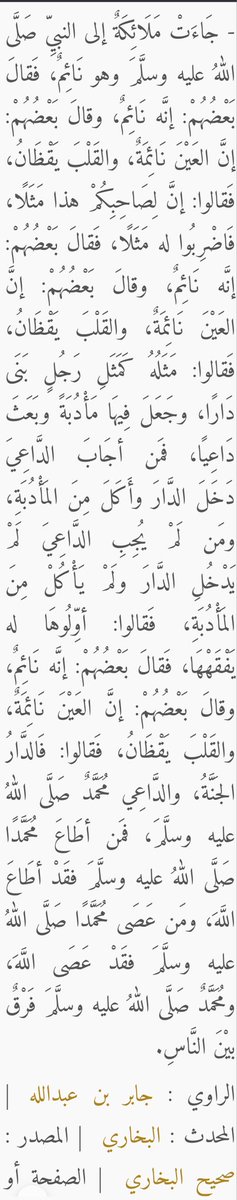 - جَاءَتْ مَلَائِكَةٌ إلى النبيِّ صَلَّى
اللهُ عليه وسلَّمَ وهو نَائِمٌ، فَقالَ
بَعْضُهُمْ: إنَّه نَائِمٌ، وقالَ بَعْضُهُمْ:
إنَّ العَيْنَ نَائِمَةٌ، والقَلْبَ يَقْظَانُ،
فَقالوا: إنَّ لِصَاحِبِكُمْ هذا مَثَلًا،
فَاضْرِبُوا له مَثَلًا، فَقالَ بَعْضُهُمْ:
إنَّه نَائِمٌ، وقالَ بَعْضُهُمْ: إنَّ
العَيْنَ نَائِمَةٌ، والقَلْبَ يَقْظَانُ،
فَقالوا: مَثَلُهُ كَمَثَلِ رَجُلٍ بَنَى
دَارًا، وجَعَلَ فِيهَا مَأْدُبَةً وبَعَثَ
دَاعِيًا، فمَن أجَابَ الدَّاعِيَ
دَخَلَ الدَّارَ وأَكَلَ مِنَ المَأْدُبَةِ،
ومَن لَمْ يُجِبِ الدَّاعِيَ لَمْ
يَدْخُلِ الدَّارَ ولَمْ يَأْكُلْ مِنَ
المَأْدُبَةِ، فَقالوا: أوِّلُوهَا له
يَفْقَهْهَا، فَقالَ بَعْضُهُمْ: إنَّه نَائِمٌ،
وقالَ بَعْضُهُمْ: إنَّ العَيْنَ نَائِمَةٌ،
والقَلْبَ يَقْظَانُ، فَقالوا: فَالدَّارُ
الجَنَّةُ، والدَّاعِي مُحَمَّدٌ صَلَّى اللهُ
عليه وسلَّمَ، فمَن أطَاعَ مُحَمَّدًا
صَلَّى اللهُ عليه وسلَّمَ فقَدْ أطَاعَ
اللَّهَ، ومَن عَصَى مُحَمَّدًا صَلَّى اللهُ
عليه وسلَّمَ فقَدْ عَصَى اللَّهَ،
ومُحَمَّدٌ صَلَّى اللهُ عليه وسلَّمَ فَرْقٌ
بيْنَ النَّاسِ.
الراوي : جابر بن عبدالله |
المحدث : البخاري | المصدر :
صحيح البخاري | الصفحة أو